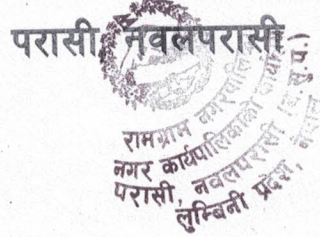 परासी, नवलपरासी
रामग्राम नगरपालिका
नगर कार्यपालिकाको कार्यालय
परासी, नवलपरासी (ब.सु.प.)
लुम्बिनी प्रदेश, नेपाल